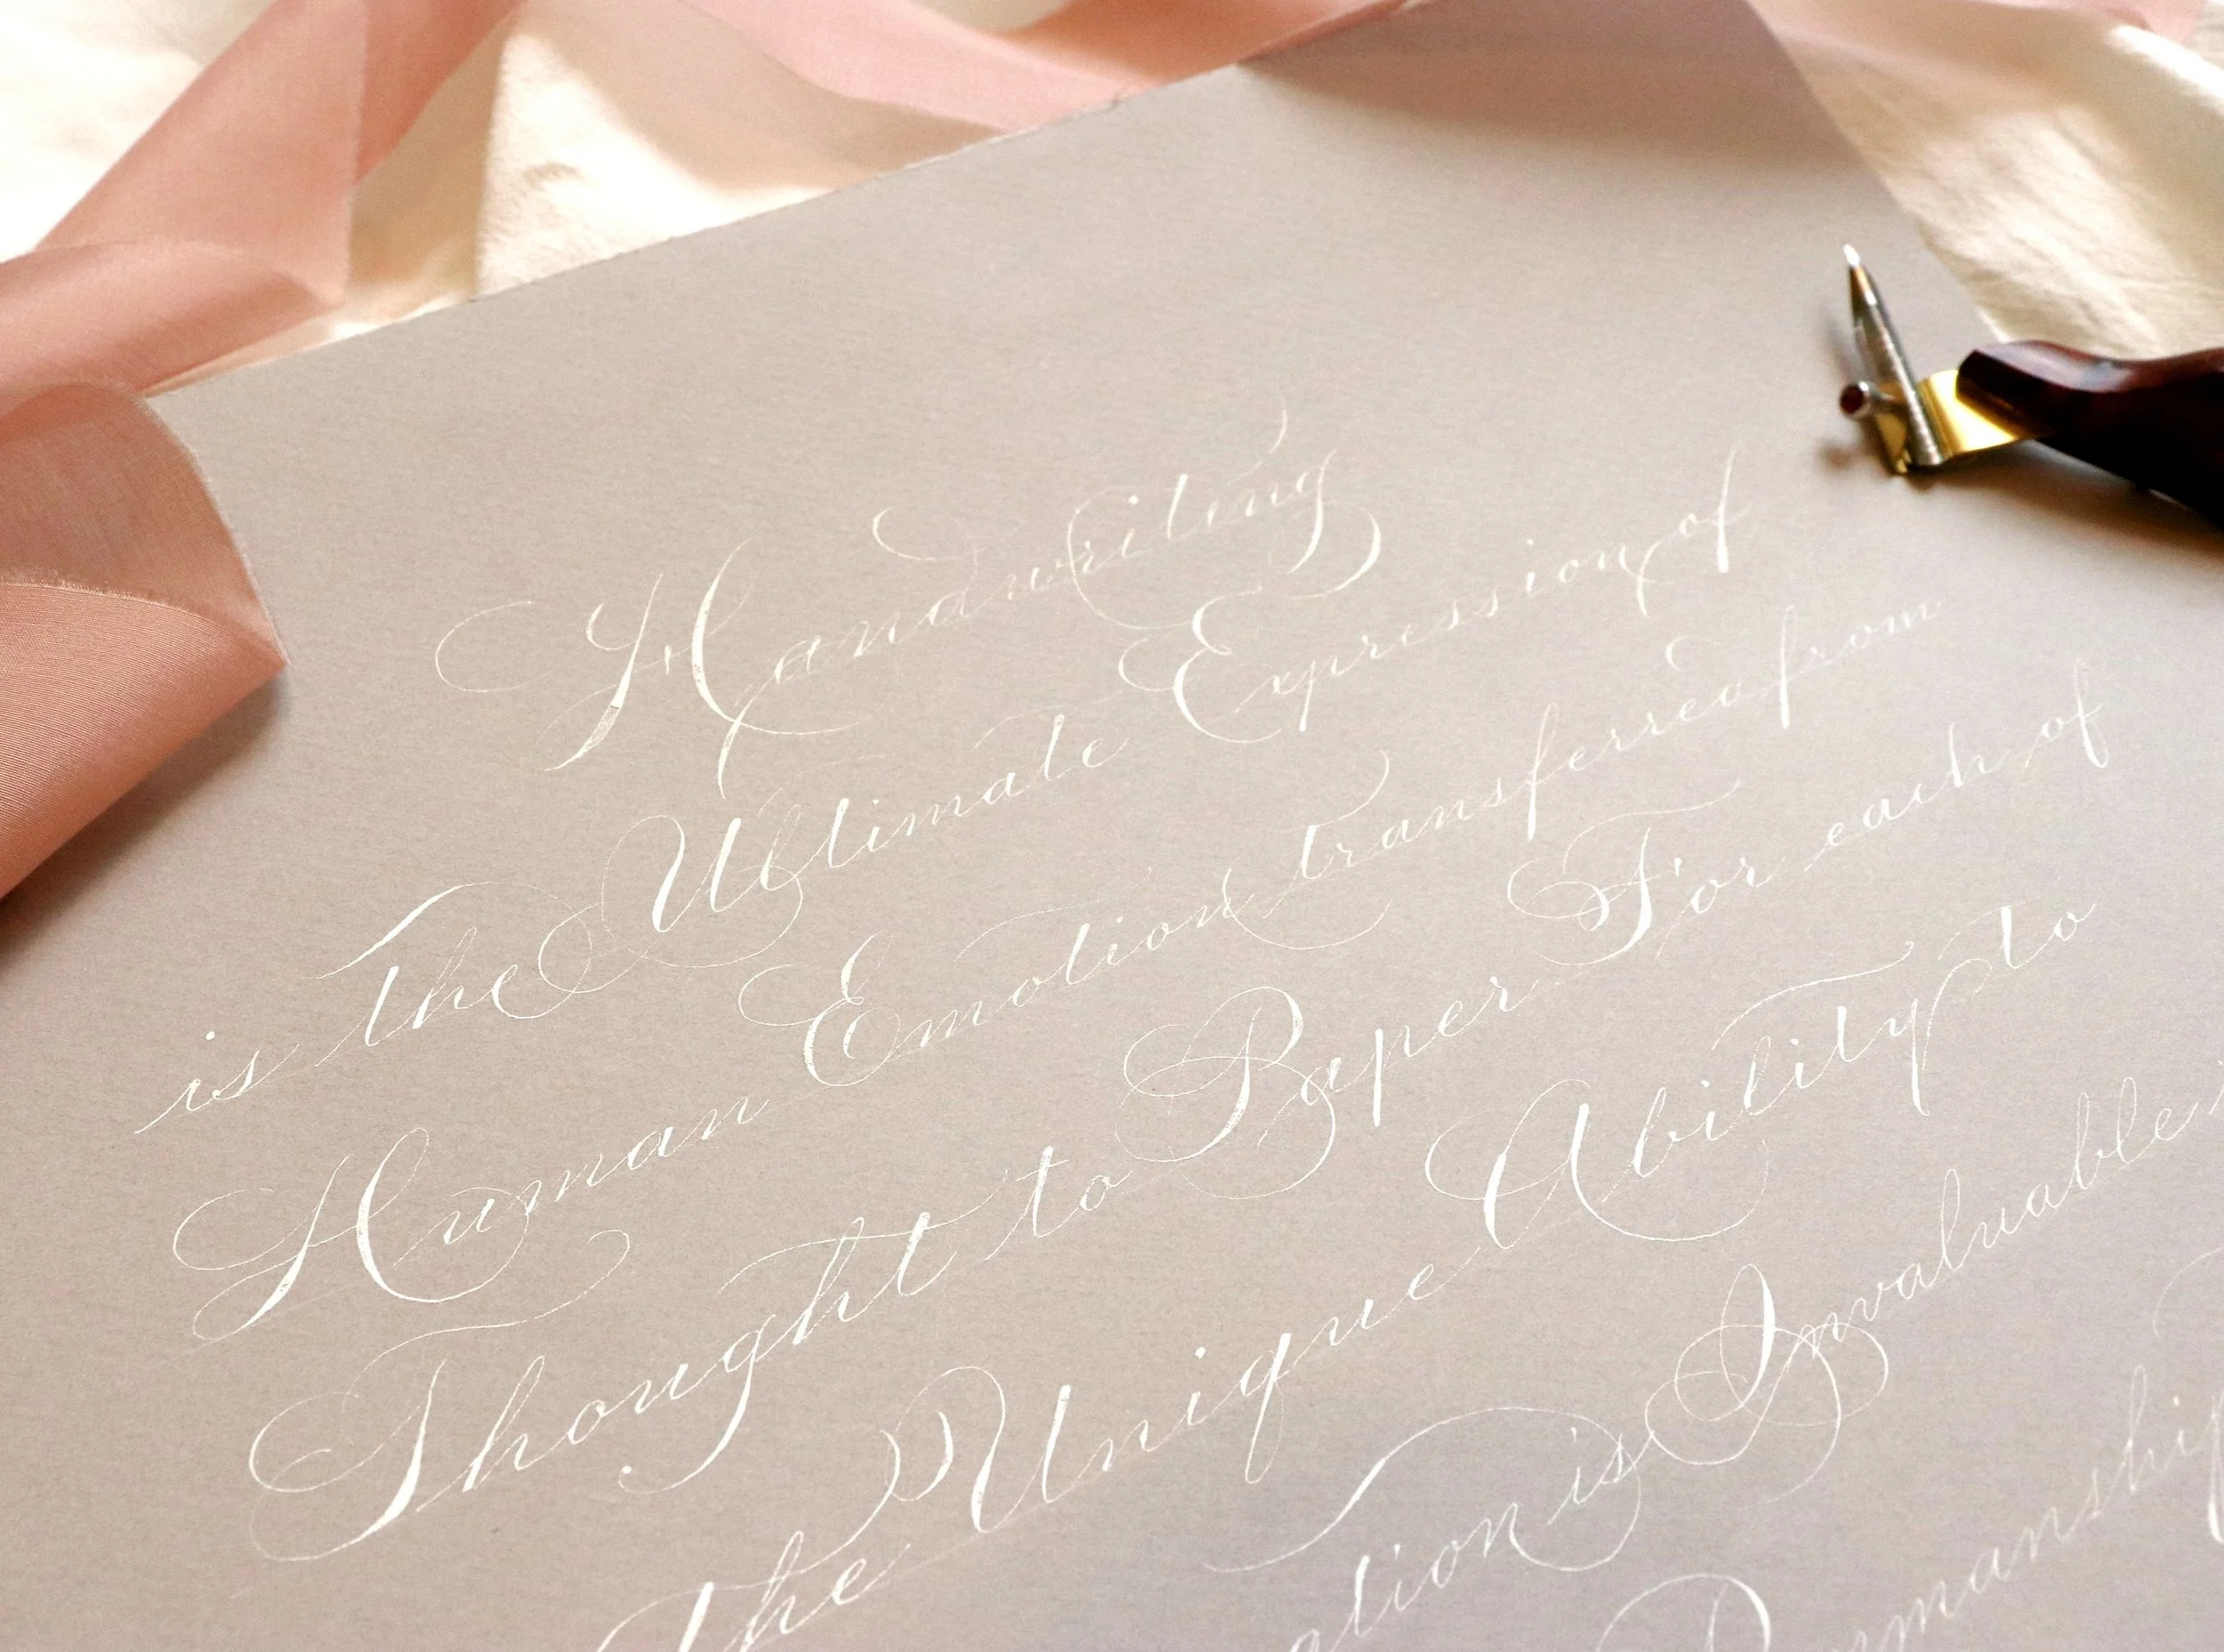 Handwriting
is the Ultimate Expression of
Human Emotion transferred from
Thought to Paper For each of
the Unique Ability to
ation is Invaluable
nmanship